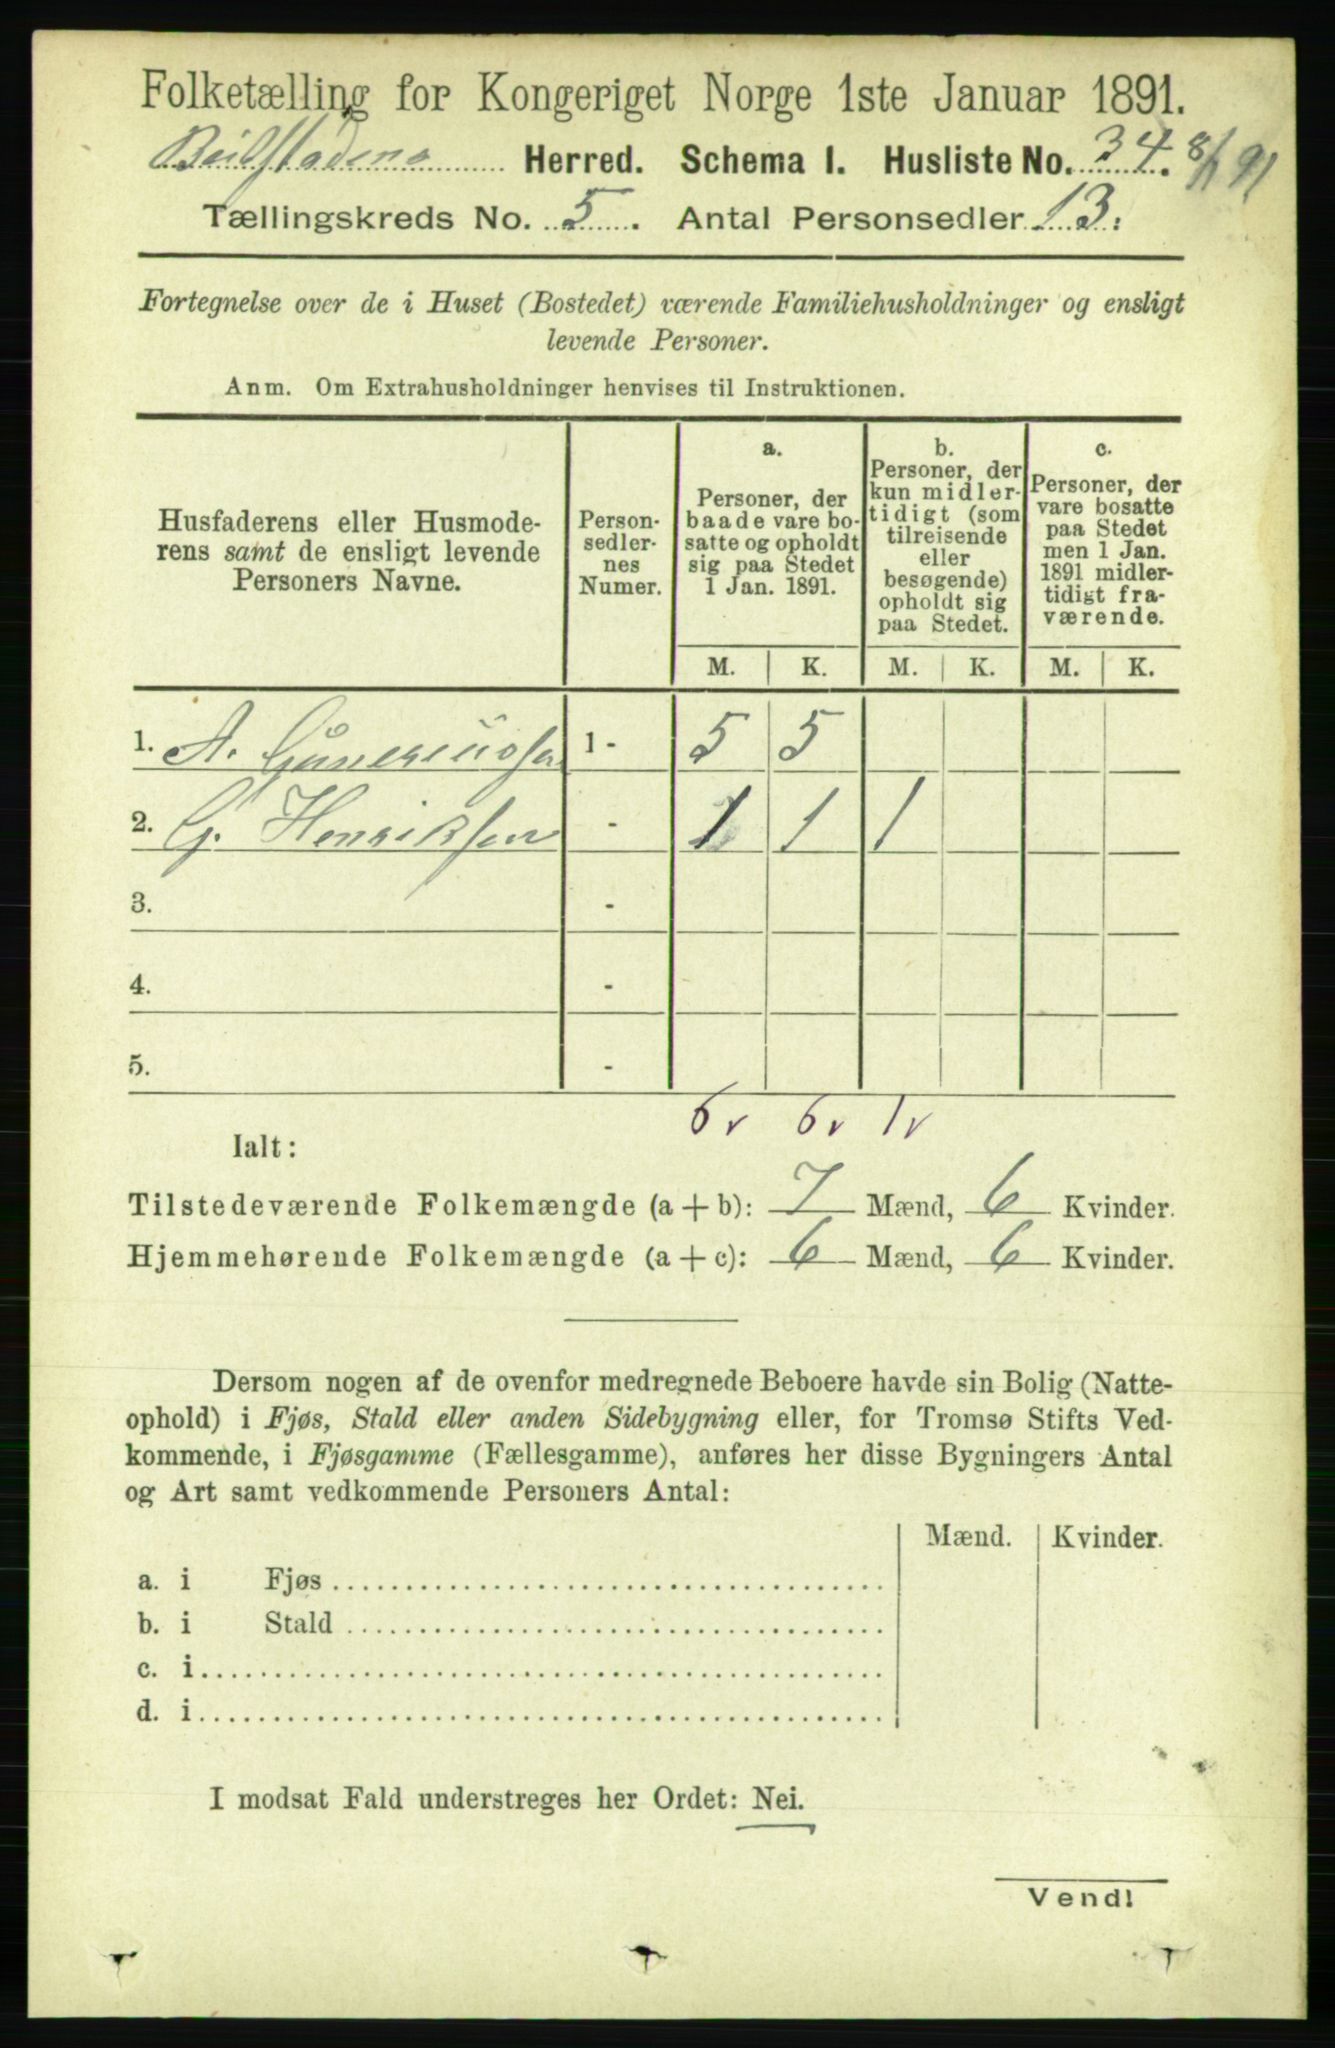 Folketælling for Kongeriget Norge 1ste Januar 1891.
Beitstadens Herred. Schema 1. Husliste No. 34. 8/1 91
Tællingskreds No. 5. Antal Personsedler 13.
Fortegnelse over de i Huset (Bostedet) værende Familiehusholdninger og ensligt
levende Personer.
Anm. Om Extrahusholdninger henvises til Instruktionen.
Husfaderens eller Husmode-
rens samt de ensligt levende
Personers Navne.
Person-
sedler-
nes
Numer.
a.
Personer, der
baade vare bo-
satte og opholdt
sig paa Stedet
1 Jan. 1891.
b.
Personer, der
kun midler-
tidigt (som
tilreisende
eller
besøgende)
opholdt sig
paa Stedet.
c.
Personer, der
vare bosatte
paa Stedet
men 1 Jan.
1891 midler-
tidigt fra-
værende.
M. K. M. K. M. K.
1. A. Guneriusen 1 - 5 5
2. G. Henriksen - 1 1 1
3. -
4. -
5. -
6 v 6 v 1 v
Ialt:
Tilstedeværende Folkemængde (a + b): 7 Mænd, 6 Kvinder.
Hjemmehørende Folkemængde (a + c): 6 Mænd, 6 Kvinder.
Dersom nogen af de ovenfor medregnede Beboere havde sin Bolig (Natte-
ophold) i Fjøs, Stald eller anden Sidebygning eller, for Tromsø Stifts Ved-
kommende, i Fjøsgamme (Fællesgamme), anføres her disse Bygningers Antal
og Art samt vedkommende Personers Antal:
Mænd. Kvinder.
a. i Fjøs
b. i Stald
c. i
d. i
I modsat Fald understreges her Ordet: Nei.
Vend!